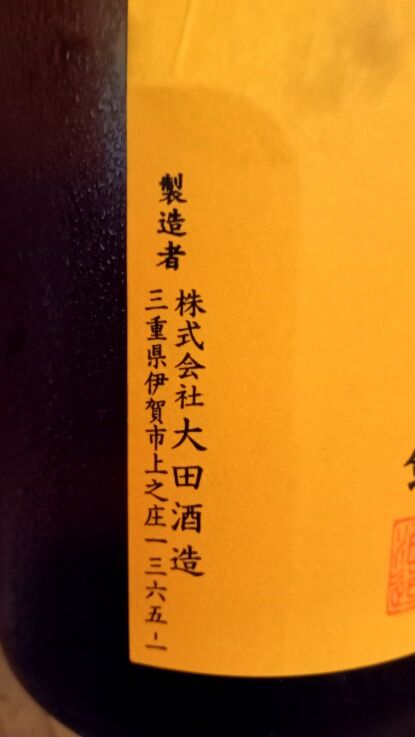 製造者
株式会社大田酒造
三重県伊賀市上之庄一三六五-一